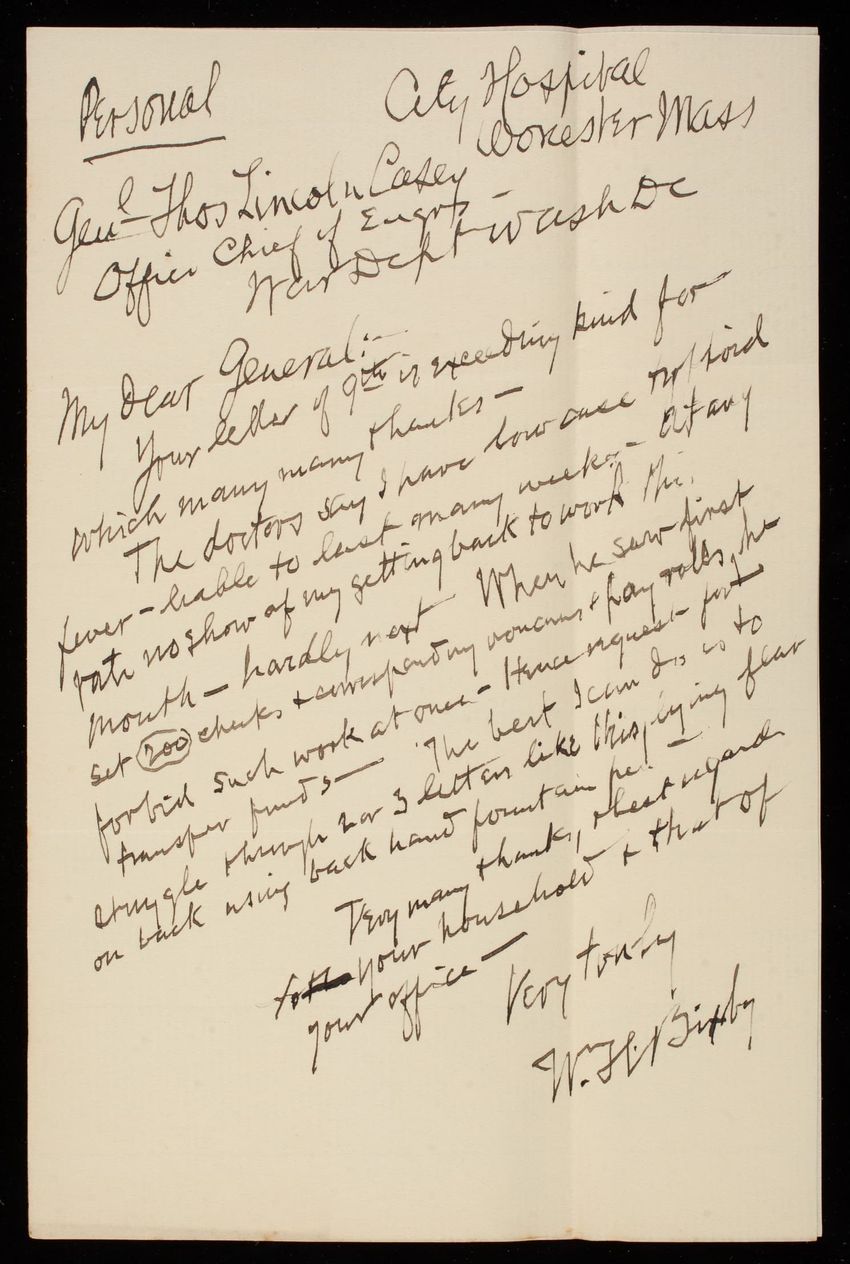 Personal
City Hospital
Worcester Mass
Genl Thos Lincoln Casey
Office Chief of Engrs -
War Dept Wash DC
My Dear General:-
Your letter of 9th is exceeding kind for
which many many thanks -
The doctors say I have low case typhoid
fever - liable to last many weeks - At any
rate no show of my getting back to work this
month - hardly next When he saw first
set 200 checks & corresponding vouchers & pay rolls, he
forbid such work at once - Hence request for
transfer funds - The best I can do is to
struggle through 2 or 3 letters like this, lying flat
on back using back hand fountain pen -
Very many thanks, & best regards
to your household & that of
your office -
Very truly
Wm. H. Bixby